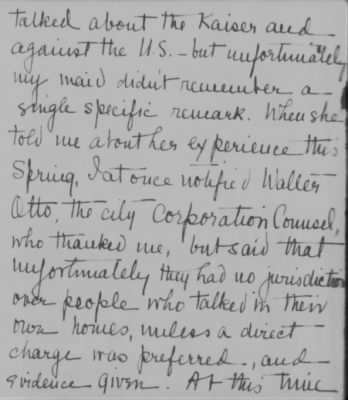 talked about the Kaiser and
against the U.S. - but unfortunately
my maid didn't remember a
single specific remark. When she
told me about her experience this
Spring, I at once notified Walter
Otto, the city Corporation Counsel,
who thanked me, but said that
unfortunately they had no jurisdiction
over people who talked in their
own homes, unless a direct
charge was preferred, and
evidence given. At this time